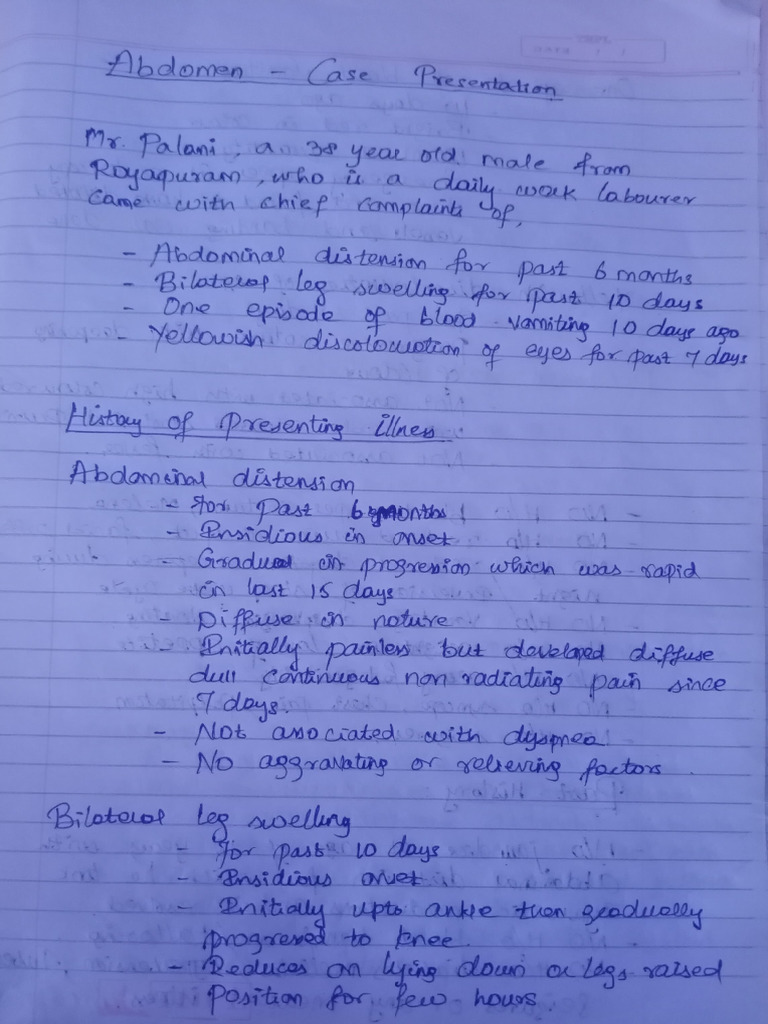 Abdomen - Case Presentation
Mr. Palani, a 38 year old male from
Royapuram, who is a daily work labourer
came with chief complaints of,
- Abdominal distension for past 6 months
- Bilateral leg swelling for past 10 days
- One episode of blood vomiting 10 days ago
- Yellowish discolouration of eyes for past 7 days
History of Presenting illness
Abdominal distension
- for past 6 months
- Insidious in onset
- Gradual in progression which was rapid
in last 15 days
- Diffuse in nature
- Initially painless but developed diffuse
dull continuous non radiating pain since
7 days.
- Not associated with dyspnea
- No aggravating or relieving factors.
Bilateral leg swelling
- for past 10 days
- Insidious onset
- Initially upto ankle then gradually
progressed to knee.
- Reduces on lying down or legs raised
position for few hours.